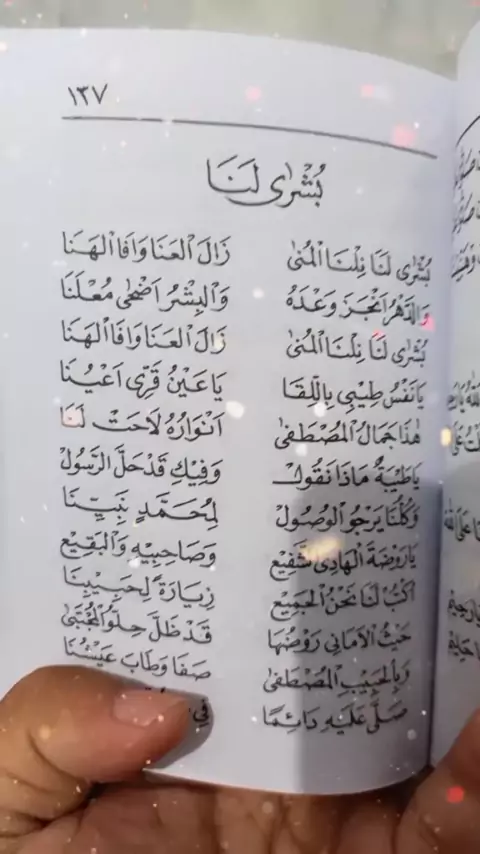 ١٣٧
بُشْرٰى لَنَا
بُشْرٰى لَنَا نِلْنَا الْمُنٰى زَالَ الْعَنَا وَافَا الْهَنَا
وَالدَّهْرُ اَنْجَزَ وَعْدَهُ وَالْبِشْرُ اَضْحٰى مُعْلَنَا
بُشْرٰى لَنَا نِلْنَا الْمُنٰى زَالَ الْعَنَا وَافَا الْهَنَا
يَا نَفْسُ طِيْبِي بِاللِّقَا يَا عَيْنُ قَرِّى اَعْيُنَا
هٰذَا جَمَالُ الْمُصْطَفٰى اَنْوَارُهُ لَاحَتْ لَنَا
يَا طَيْبَةُ مَاذَا نَقُولُ وَفِيْكِ قَدْ حَلَّ الرَّسُولْ
وَكُلُّنَا يَرْجُو الْوُصُولْ لِمُحَمَّدٍ نَبِيِّنَا
يَا رَوْضَةَ الْهَادِى شَفِيْعْ وَصَاحِبَيْهِ وَالْبَقِيْعْ
اُكْتُبْ لَنَا نَحْنُ الْجَمِيْعْ زِيَارَةً لِحَبِيْبِنَا
حَيْثُ الْاَمَانِي رَوْضُهَا قَدْ ظَلَّ حِلْوُ الْمُجْتَنٰى
وَبِالْحَبِيْبِ الْمُصْطَفٰى صَفَا وَطَابَ عَيْشُنَا
صَلَّى عَلَيْهِ دَائِمًا فِي